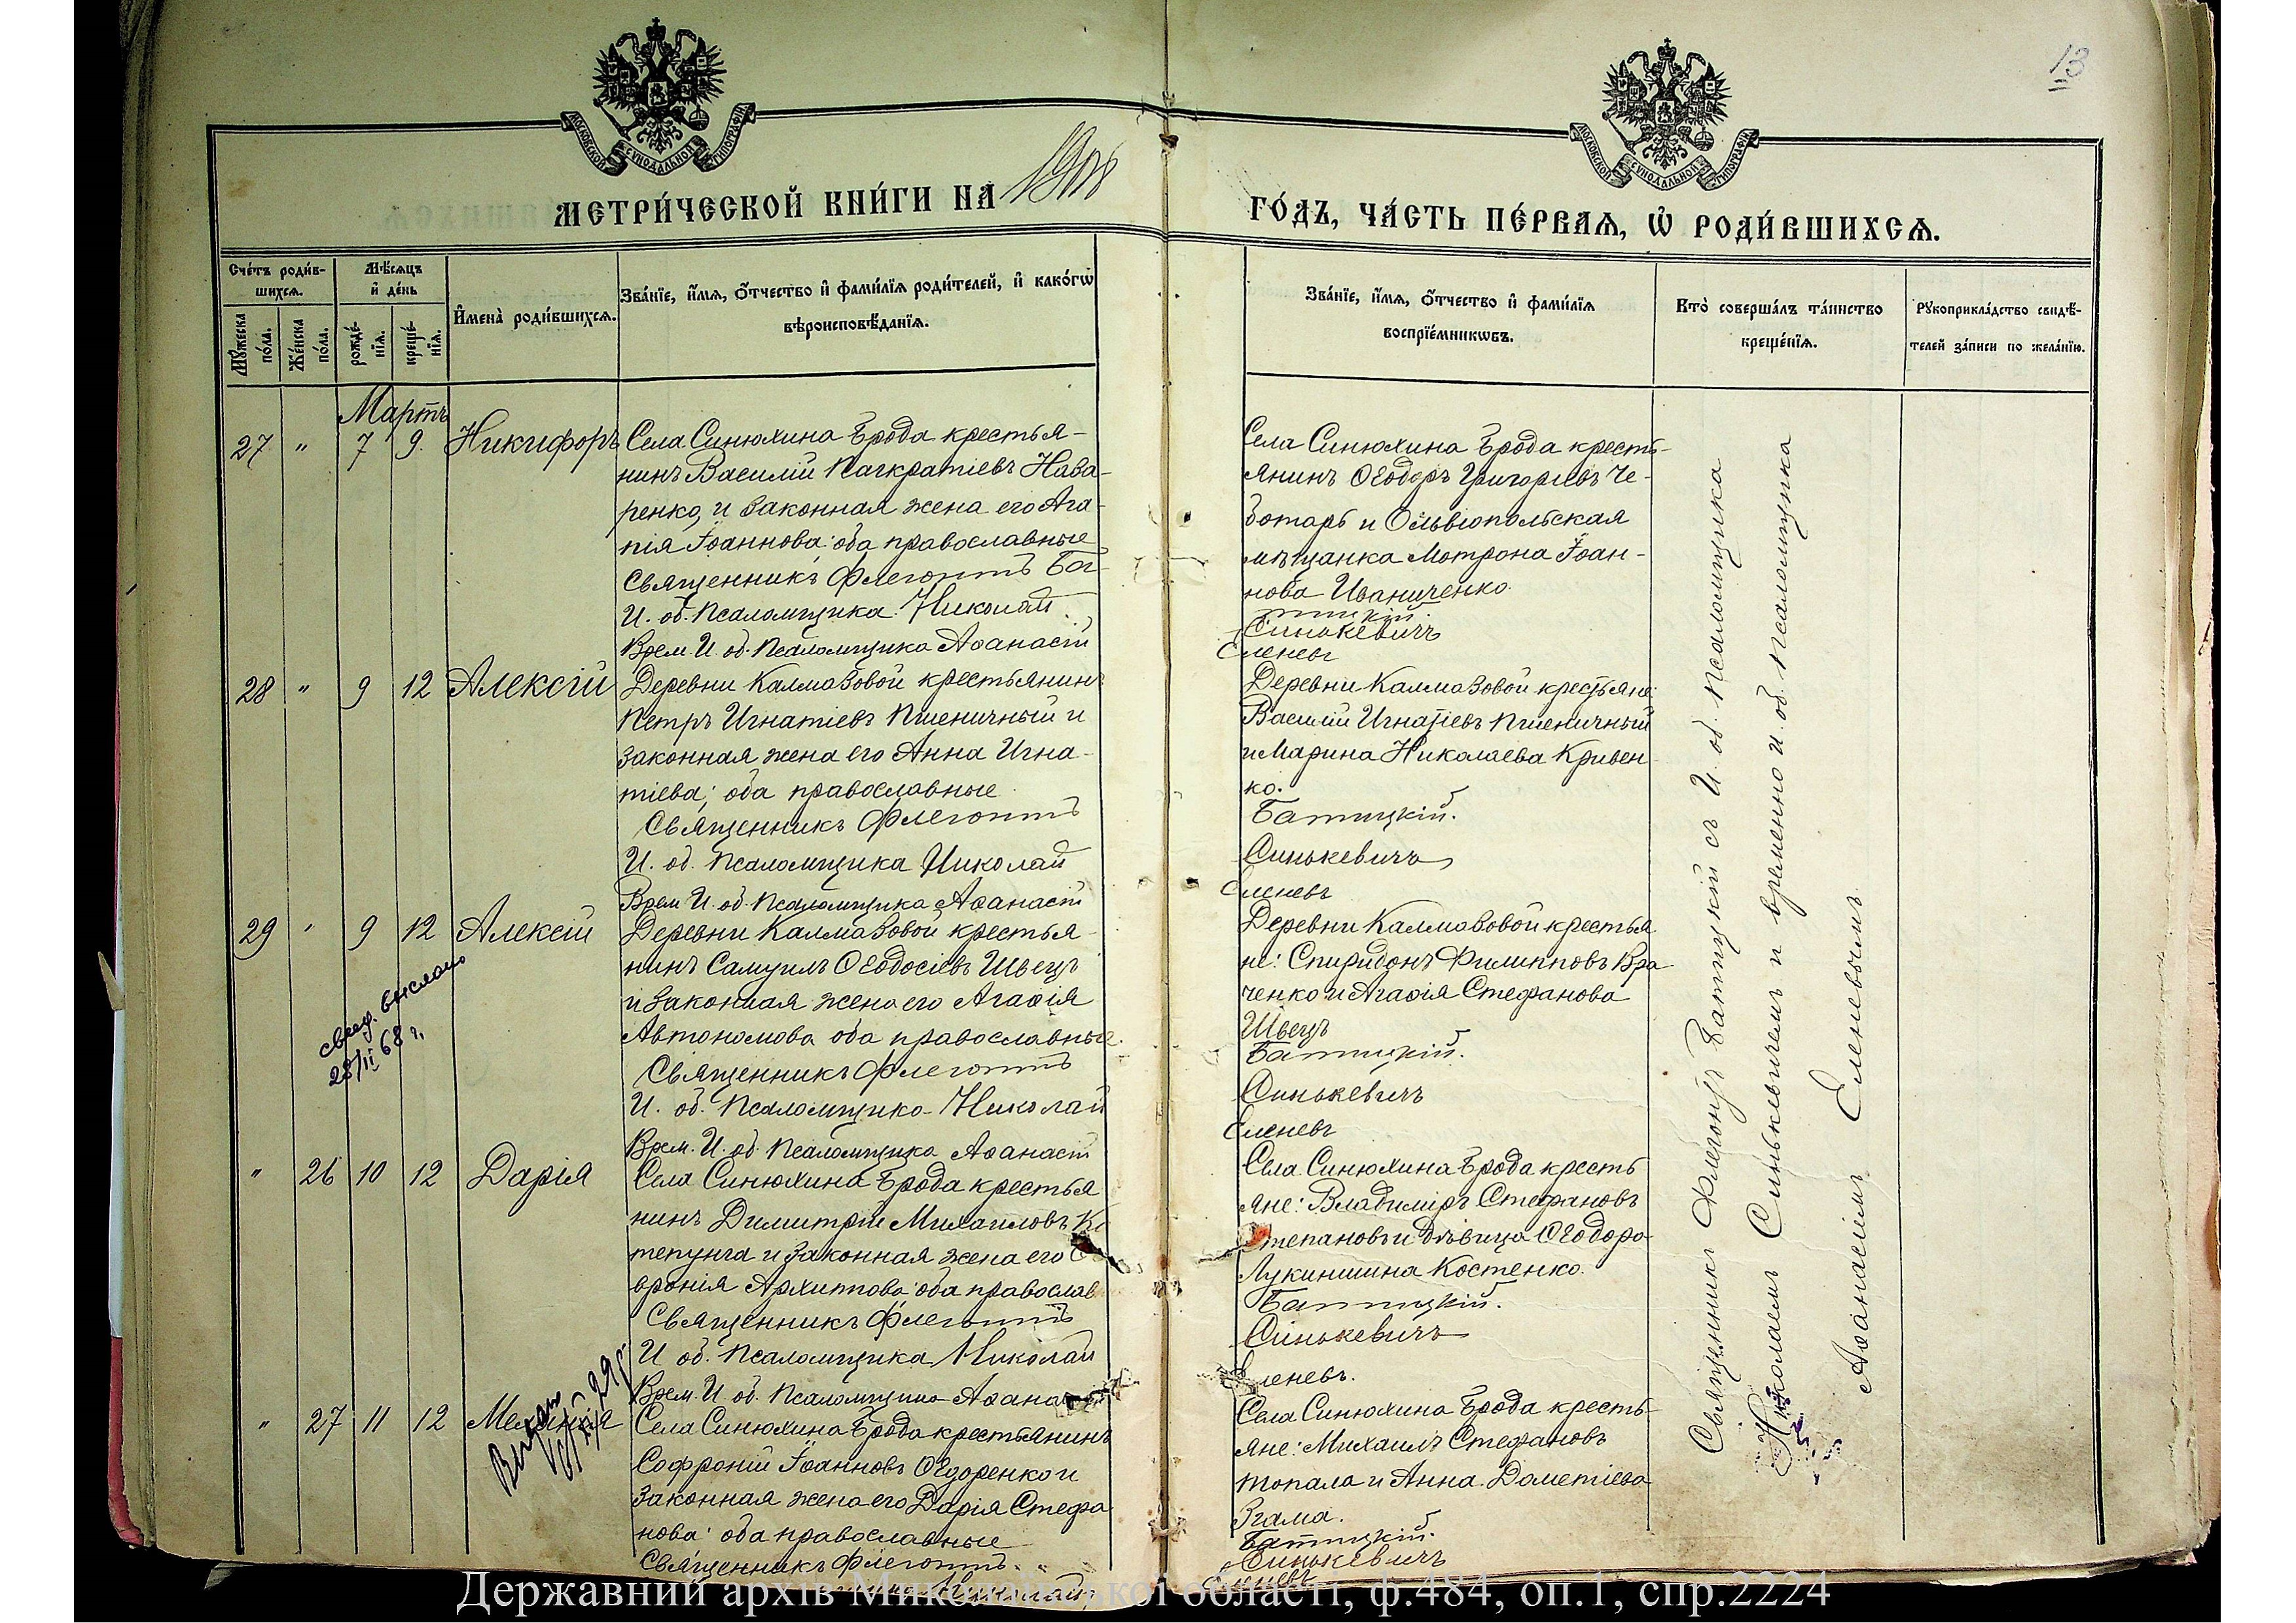 13
МОСКОВСКОЙ СѴНОДАЛЬНОЙ ТИПОГРАФІИ
МОСКОВСКОЙ СѴНОДАЛЬНОЙ ТИПОГРАФІИ
МЕТРИ́ЧЕСКОЙ КНИ́ГИ НА
ГО́ДЪ, ЧА́СТЬ ПЕ́РВАѦ, Ѡ҆ РОДИ́ВШИХСѦ.
Сче́тъ роди́в-
шихсѧ.
Мѣ́сѧцъ
и҆ де́нь
Мꙋ́жеска по́ла.
Же́нска по́ла.
рожде́-нїѧ.
креще́-нїѧ.
И҆мена̀ роди́вшихсѧ.
Зва́нїе, и҆́мѧ, ѻ҆́тчество и҆ фами́лїѧ роди́телей, и҆ како́гѡ
вѣроисповѣ́данїѧ.
Зва́нїе, и҆́мѧ, ѻ҆́тчество и҆ фами́лїѧ
воспрїе́мникѡвъ.
Кто̀ соверша́лъ та́инство
креще́нїѧ.
Рꙋкоприкла́дство свидѣ́-
телей за́писи по жела́нїю.
Мартъ
27 " 7 9. Никифоръ
Села Синюхина Брода крестья-
нинъ Василій Панкратіевъ Нава-
ренко, и законная жена его Ага-
пія Іоаннова: оба православные
Священникъ Флегонтъ Бат-
И. об. псаломщика Николай
Врем. И. об. псаломщика Аѳанасій
Села Синюхина Брода кресть-
янинъ Ѳеодоръ Григоріевъ Че-
ботарь и Ольвіопольская
мѣщанка Мотрона Іоан-
нова Иваниченко.
тицкій.
Синькевичъ
Еленевъ
28 " 9 12 Алексій
Деревни Калмазовой крестьянинъ
Петръ Игнатіевъ Пшеничный и
законная жена его Анна Игна-
тіева; оба православные
Священникъ Флегонтъ
И. об. псаломщика Николай
Врем. И. об. псаломщика Аѳанасій
Деревни Калмазовой крестьяне:
Василій Игнатіевъ Пшеничный
и Марина Николаева Кривен
ко.
Батицкій.
Синькевичъ
Еленевъ
29 " 9 12 Алексій
свид. выслано
28/II 68 г.
Деревни Калмазовой крестья-
нинъ Самуилъ Ѳеодосіевъ Швецъ
и законная жена его Агаѳія
Автономова оба православные.
Священникъ Флегонтъ
И. об. псаломщика Николай
Врем. И. об. псаломщика Аѳанасій
Деревни Калмазовой крестья
не: Спиридонъ Филипповъ Кра
ченко и Агаѳія Стефанова
Швецъ
Батицкій.
Синькевичъ
Еленевъ
" 26 10 12 Дарія
Села Синюхина Брода крестья
нинъ Димитрій Михаиловъ
и законная жена его
вронія Архиппова оба православ
Священникъ Флегонтъ
И об. псаломщика Николай
Врем. И. об. псаломщика Аѳанасій
Села Синюхина Брода кресть
яне: Владиміръ Стефановъ
Степановъ и дѣвица Ѳеодора
Лукиншина Костенко.
Батицкій.
Синькевичъ
Еленевъ.
" 27 11 12
Села Синюхина Брода крестьянинъ
Софроній Іоанновъ Ѳедоренко и
законная жена его Дарія Стефа
нова: оба православные
Священникъ Флегонтъ
Николай
Села Синюхина Брода кресть-
яне: Михаилъ Стефановъ
Топала и Анна Дометіева
Згама.
Батицкій.
Синькевичъ
Еленевъ
Священникъ Флегонтъ Батицкій съ И. об. псаломщика
Николаемъ Синькевичемъ и временно и. об. псаломщика
Аѳанасіемъ Еленевымъ.
Державний архів Миколаївської області, ф.484, оп.1, спр.2224